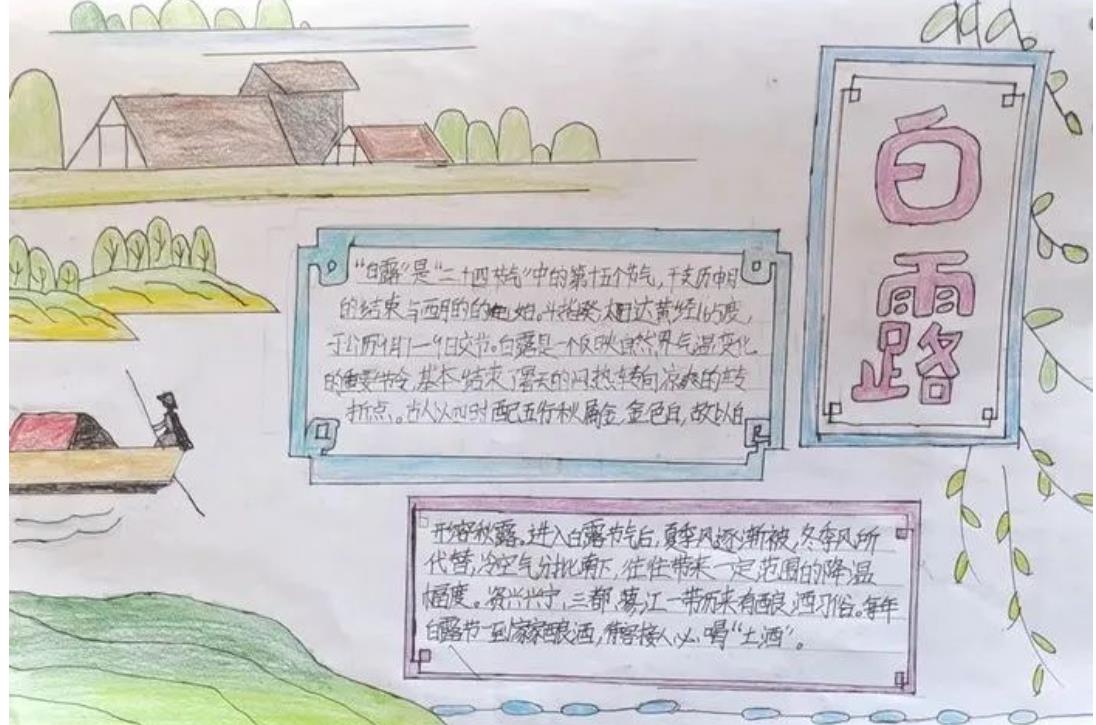 白露
"白露"是"二十四节气"中的第十五个节气,干支历申月
的结束与酉月的的起始。斗指癸,太阳达黄经165度,
于公历9月7—9日交节。白露是一个反映自然界气温变化
的重要节令,基本结束了暑天的闷热,转向凉爽的
折点。古人以四时配五行秋属金,金色白,故以白
形容秋露。进入白露节气后,夏季风逐渐被冬季风所
代替,冷空气分批南下,往往带来一定范围的降温
幅度。资兴兴宁,三都,蓼江一带历来有酿酒习俗。每年
白露节一到家家酿酒,待客接人必喝"土酒"。